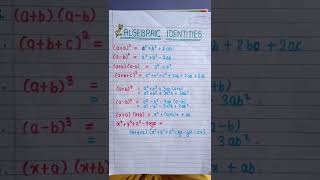 ALGEBRAIC IDENTITIES
(a+b)² = a²+b²+2ab
(a-b)² = a²+b²-2ab
(a+b)(a-b) = a²-b²
(a+b+c)² = a²+b²+c²+2ab+2bc+2ac
(a+b)³ = a³+b³+3ab(a+b)
= a³+b³+3a²b+3ab²
(a-b)³ = a³-b³-3ab(a-b)
= a³-b³-3a²b+3ab²
(x+a)(x+b) = x²+(a+b)x+ab
x³+y³+z³-3xyz =
(x+y+z)(x²+y²+z²-xy-yz-zx)
(a+b+c)² =
(a-b)³ =
(a+b)³ =
(x+a)(x
2bc+2ac
3ab²